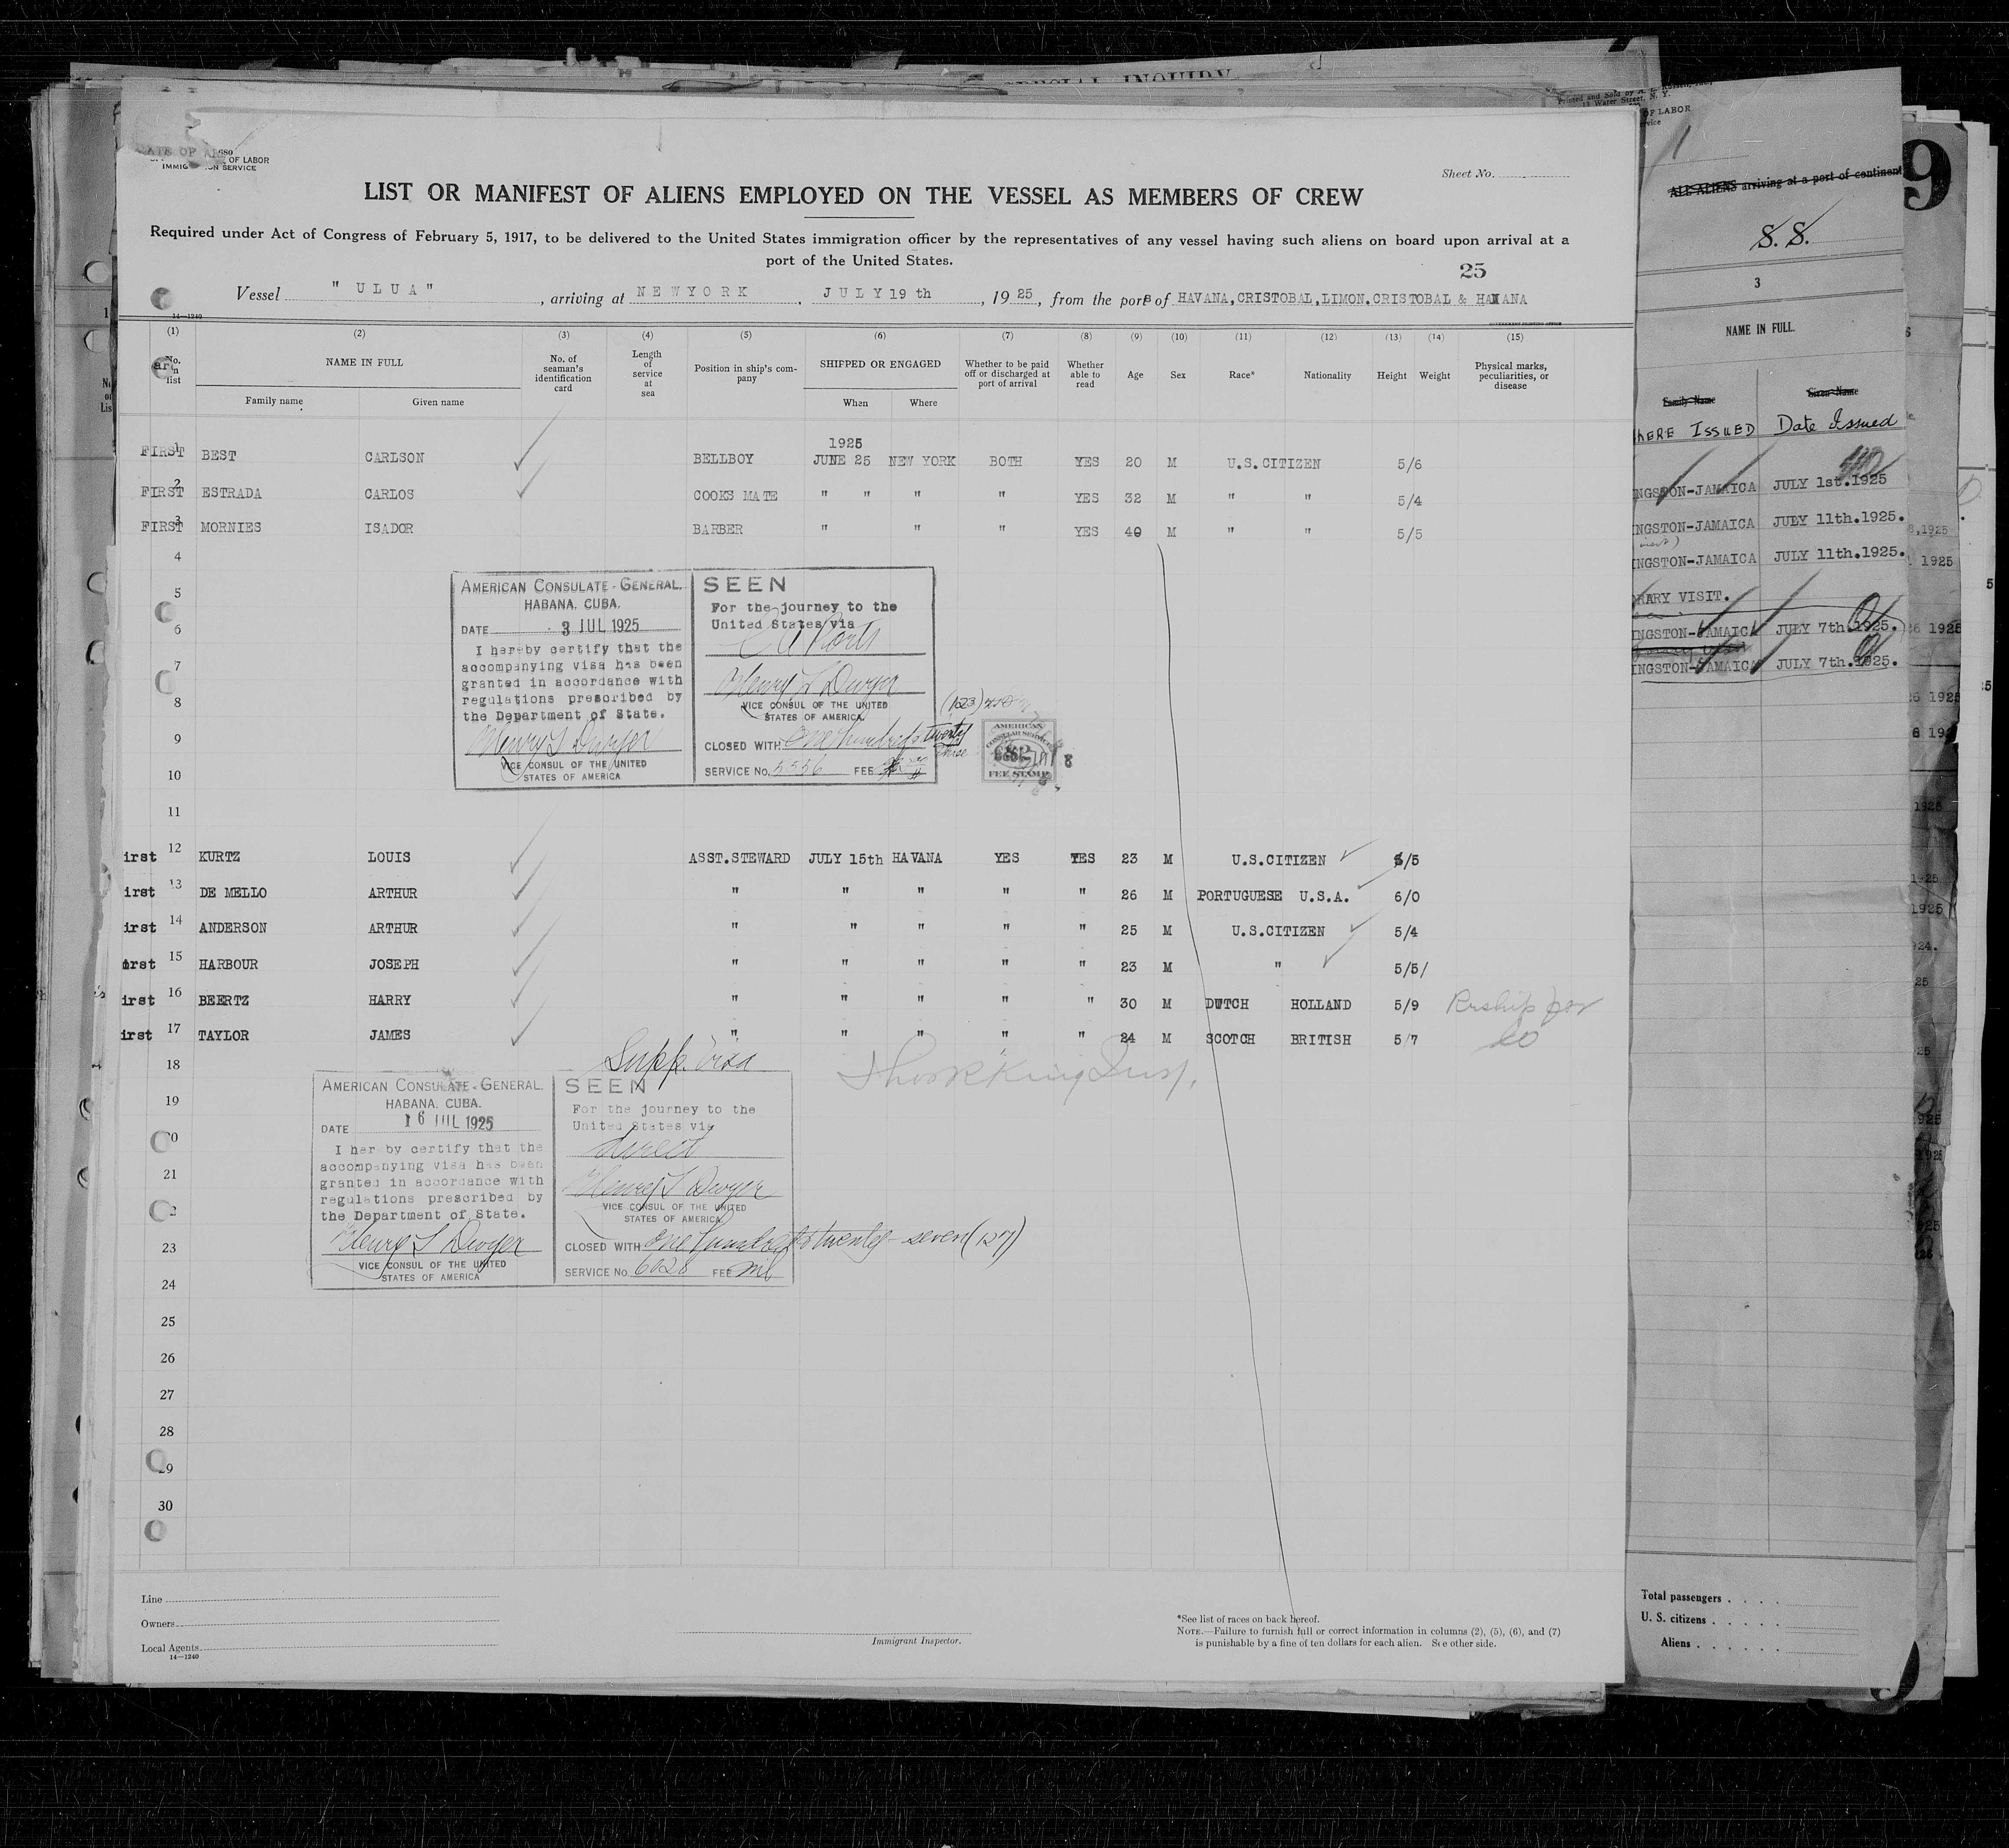 SPECIAL INQUIRY
680
OF LABOR
IMMIG ON SERVICE
Sheet No.
LIST OR MANIFEST OF ALIENS EMPLOYED ON THE VESSEL AS MEMBERS OF CREW
Required under Act of Congress of February 5, 1917, to be delivered to the United States immigration officer by the representatives of any vessel having such aliens on board upon arrival at a
port of the United States.
25
Vessel "ULUA", arriving at NEWYORK, JULY 19 th, 1925, from the ports of HAVANA, CRISTOBAL, LIMON. CRISTOBAL & HAVANA
14—1240
(1) (2) (3) (4) (5) (6) (7) (8) (9) (10) (11) (12) (13) (14) (15)
No. on list NAME IN FULL No. of seaman's identification card Length of service at sea Position in ship's company SHIPPED OR ENGAGED Whether to be paid off or discharged at port of arrival Whether able to read Age Sex Race* Nationality Height Weight Physical marks, peculiarities, or disease
Family name Given name When Where
1925
FIRST 1 BEST CARLSON BELLBOY JUNE 25 NEW YORK BOTH YES 20 M U.S.CITIZEN 5/6
FIRST 2 ESTRADA CARLOS COOKS MATE " " " " YES 32 M " " 5/4
FIRST 3 MORNIES ISADOR BARBER " " " YES 40 M " " 5/5
4
5
6
7
8
9
10
11
AMERICAN CONSULATE-GENERAL.
HABANA, CUBA.
DATE 3 JUL 1925
I hereby certify that the
accompanying visa has been
granted in accordance with
regulations prescribed by
the Department of State.
Henry S Dwyer
VICE CONSUL OF THE UNITED
STATES OF AMERICA
SEEN
For the journey to the
United States via
Henry S Dwyer
VICE CONSUL OF THE UNITED
STATES OF AMERICA
CLOSED WITH One hundred & twenty three
(123)
SERVICE No. 5556 FEE
AMERICAN
CONSULAR SERVICE
FEE STAMP
irst 12 KURTZ LOUIS ASST.STEWARD JULY 15th HAVANA YES YES 23 M U.S.CITIZEN 5/5
irst 13 DE MELLO ARTHUR " " " " " 26 M PORTUGUESE U.S.A. 6/0
irst 14 ANDERSON ARTHUR " " " " " 25 M U.S.CITIZEN 5/4
irst 15 HARBOUR JOSEPH " " " " " 23 M " 5/5/
irst 16 BEERTZ HARRY " " " " " 30 M DUTCH HOLLAND 5/9
irst 17 TAYLOR JAMES " " " " " 24 M SCOTCH BRITISH 5/7 do
18
Supp. Visa
19
20
21
22
23
24
25
26
27
28
29
30
AMERICAN CONSULATE-GENERAL.
HABANA, CUBA.
DATE 16 JUL 1925
I hereby certify that the
accompanying visa has been
granted in accordance with
regulations prescribed by
the Department of State.
Henry S Dwyer
VICE CONSUL OF THE UNITED
STATES OF AMERICA
SEEN
For the journey to the
United States via
direct
Henry S Dwyer
VICE CONSUL OF THE UNITED
STATES OF AMERICA
CLOSED WITH One hundred & twenty-seven (127)
SERVICE No. 6028 FEE nil
Line
Owners
Local Agents
14—1240
Immigrant Inspector.
*See list of races on back hereof.
NOTE.—Failure to furnish full or correct information in columns (2), (5), (6), and (7)
is punishable by a fine of ten dollars for each alien. See other side.
OF LABOR
ALL ALIENS arriving at a port of continent
S. S.
3
NAME IN FULL.
Family Name Given Name
WHERE ISSUED Date Issued
NGSTON-JAMAICA JULY 1st.1925
NGSTON-JAMAICA JULY 11th.1925.
NGSTON-JAMAICA JULY 11th.1925.
RARY VISIT.
NGSTON-JAMAICA JULY 7th.1925.
NGSTON-JAMAICA JULY 7th.1925.
Total passengers
U. S. citizens
Aliens
9